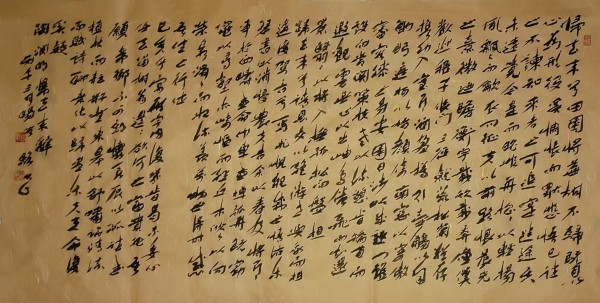 歸去來兮田園將蕪胡不歸既自以
心為形役奚惆悵而獨悲悟已往
之不諫知來者之可追實迷途其
未遠覺今是而昨非舟遙遙以輕颺
風飄飄而吹衣問征夫以前路恨晨光
之熹微乃瞻衡宇載欣載奔僮僕
歡迎稚子候門三徑就荒松菊猶存
攜幼入室有酒盈樽引壺觴以自
酌眄庭柯以怡顏倚南窗以寄傲
審容膝之易安園日涉以成趣門雖
設而常關策扶老以流憩時矯首而
遐觀雲無心以出岫鳥倦飛而知還
景翳翳以將入撫孤松而盤桓
歸去來兮請息交以絕游世與我而相
違復駕言兮焉求悅親戚之情話樂
琴書以消憂農人告余以春及將有
事於西疇或命巾車或棹孤舟既窈
窕以尋壑亦崎嶇而經丘木欣欣以向
榮泉涓涓而始流善萬物之得時感
吾生之行休
已矣乎寓形宇內復幾時曷不委心
任去留胡為乎遑遑欲何之富貴非吾
願帝鄉不可期懷良辰以孤往或
植杖而耘耔登東皋以舒嘯臨清流
而賦詩聊乘化以歸盡樂夫天命復
奚疑
陶淵明歸去來辭
丙午三月